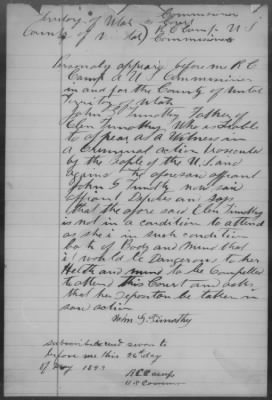 Territory of Utah Commissioner Court
County of R C Camp U S Commissioner
Personaly appears before me R C
Camp a U S Commissioner
in and for the County of
Territory of Utah
John G Timothy Father of
Ellen Timothy Who is liable
to appear as Witness in
a Criminal action Prosecute
by the People of the U.S. and
against the afore said affiant
John G Timothy now said
affiant Deposes and says
that the afore said Ellen Timothy
is not in a condition to attend
as she is in such condition
both of Body and Mind that
it would be Dangerous to her
Helth and mind to be Compelled
to attend this Court and asks
that her deposition be taken in
said action
John G. Timothy
subscribed and sworn to
before me this 26 day
of 1893
R C Camp
U S Commr